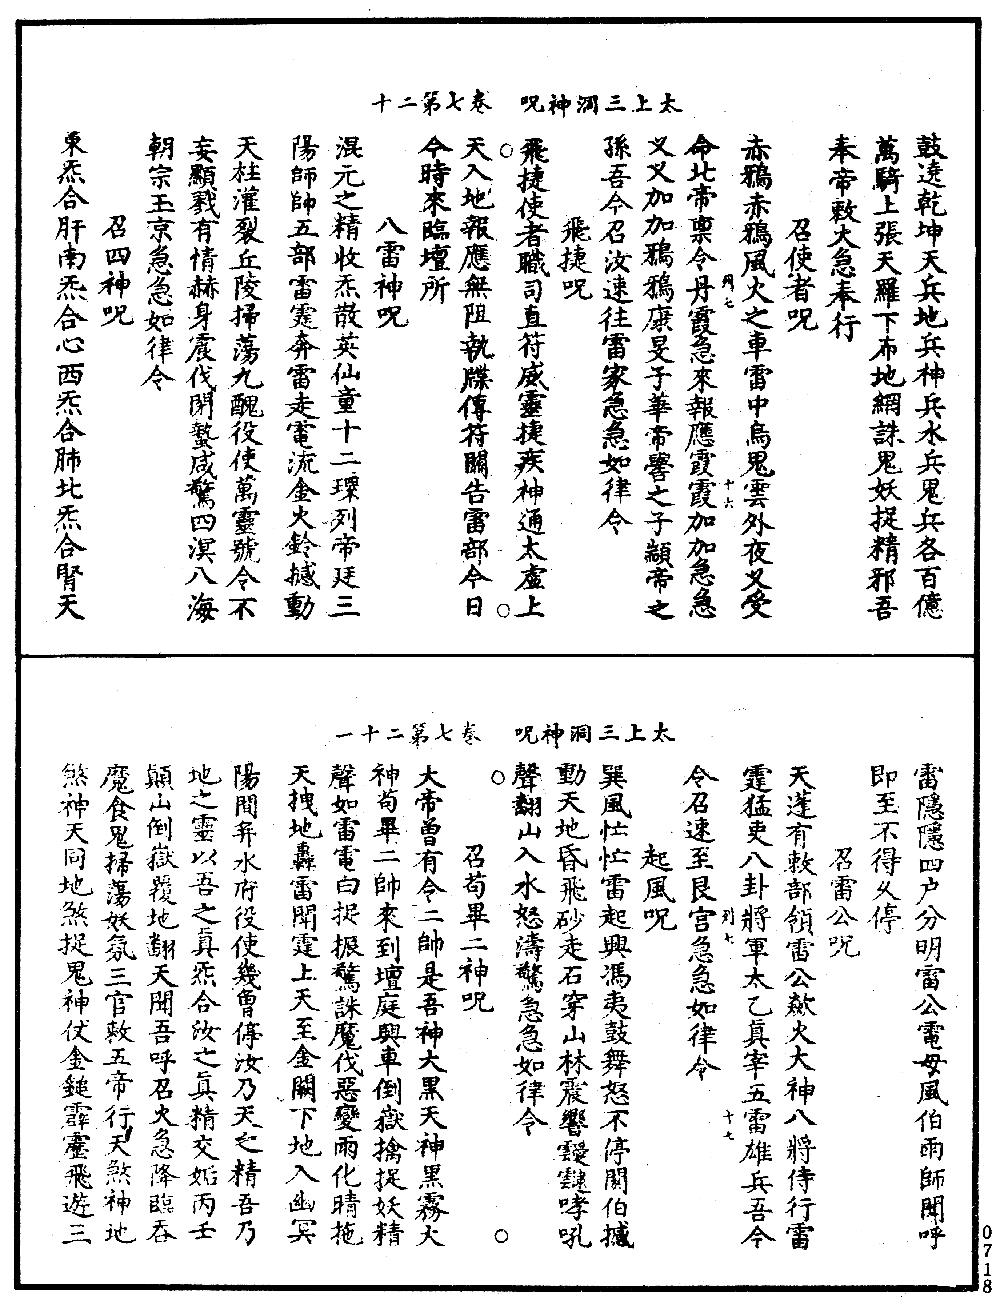 太上三洞神呪　卷七第二十
鼓遶乾坤天兵地兵神兵水兵鬼兵各百億
萬騎上張天羅下布地網誅鬼妖捉精邪吾
奉帝敕火急奉行
召使者呪
赤鴉赤鴉風火之車雷中烏鬼雲外夜叉受
命北帝禀令丹霞急來報應霞霞加加急急
列七　十六
叉叉加加鴉鴉康旻子華帝嚳之子顓帝之
孫吾今召汝速往雷家急急如律令
飛捷呪
飛捷使者職司直符威靈捷疾神通太虛上
天入地報應無阻執牒傳符關告雷部今日
今時來臨壇所
八雷神呪
混元之精收炁散英仙童十二環列帝廷三
陽師帥五部雷霆奔雷走電流金火鈴撼動
天柱灌裂丘陵掃蕩九醜役使萬靈號令不
妄顯戮有情赫身震伐開蟄咸驚四溟八海
朝宗玉京急急如律令
召四神呪
東炁合肝南炁合心西炁合肺北炁合腎天
太上三洞神呪　卷七第二十一
雷隱隱四户分明雷公電母風伯雨師聞呼
即至不得久停
召雷公呪
天蓬有敕部領雷公歘火大神八將侍行雷
霆猛吏八卦將軍太乙眞宰五雷雄兵吾今
列七　十七
令召速至艮宫急急如律令
起風呪
巽風忙忙雷起興馮夷鼓舞怒不停關伯撼
動天地昏飛砂走石穿山林震響靉靆哮吼
聲翻山入水怒濤驚急急如律令
召苟畢二神呪
大帝曾有令二帥是吾神大黑天神黑霧大
神苟畢二帥來到壇庭興車倒嶽擒捉妖精
聲如雷電白捉振驚誅魔伐惡變雨化晴拖
天拽地轟雷聞霆上天至金闕下地入幽冥
陽間并水府役使幾曾停汝乃天之精吾乃
地之靈以吾之眞炁合汝之眞精交姤丙壬
顛山倒嶽覆地翻天聞吾呼召火急降臨吞
魔食鬼掃蕩妖氛三官敕五帝行天煞神地
煞神天同地煞捉鬼神仗金鎚霹靂飛遊三
0718